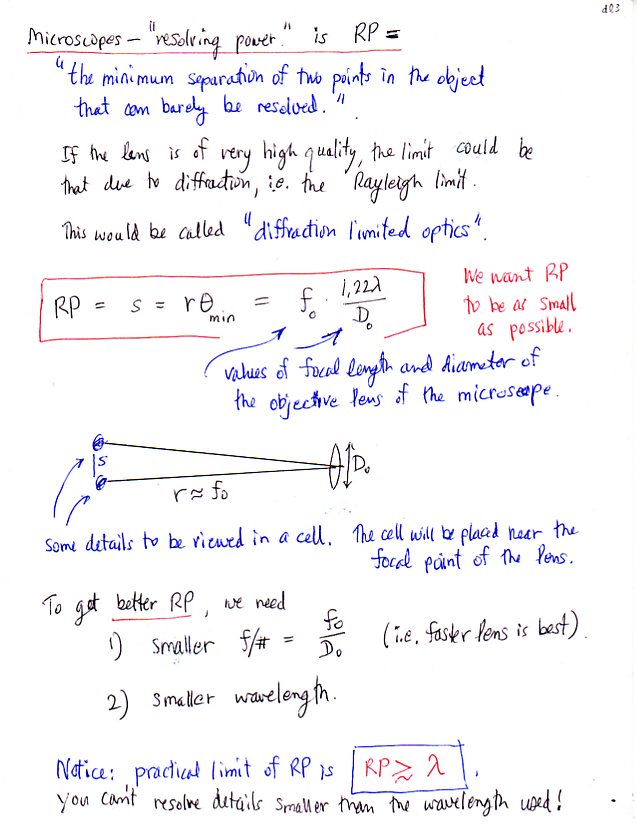 dl3
Microscopes – "resolving power." is RP =
"the minimum separation of two points in the object
that can barely be resolved."
If the lens is of very high quality, the limit could be
that due to diffraction, i.e. the Rayleigh limit.
This would be called "diffraction limited optics".
RP = s = rθmin = f₀ · 1.22λ/D₀
We want RP
to be as small
as possible.
values of focal length and diameter of
the objective lens of the microscope.
s
D₀
r ≈ f₀
Some details to be viewed in a cell. The cell will be placed near the
focal point of the lens.
To get better RP, we need
1) smaller f/# = f₀/D₀ (i.e. faster lens is best).
2) smaller wavelength.
Notice: practical limit of RP is RP ≳ λ.
You can't resolve details smaller than the wavelength used!